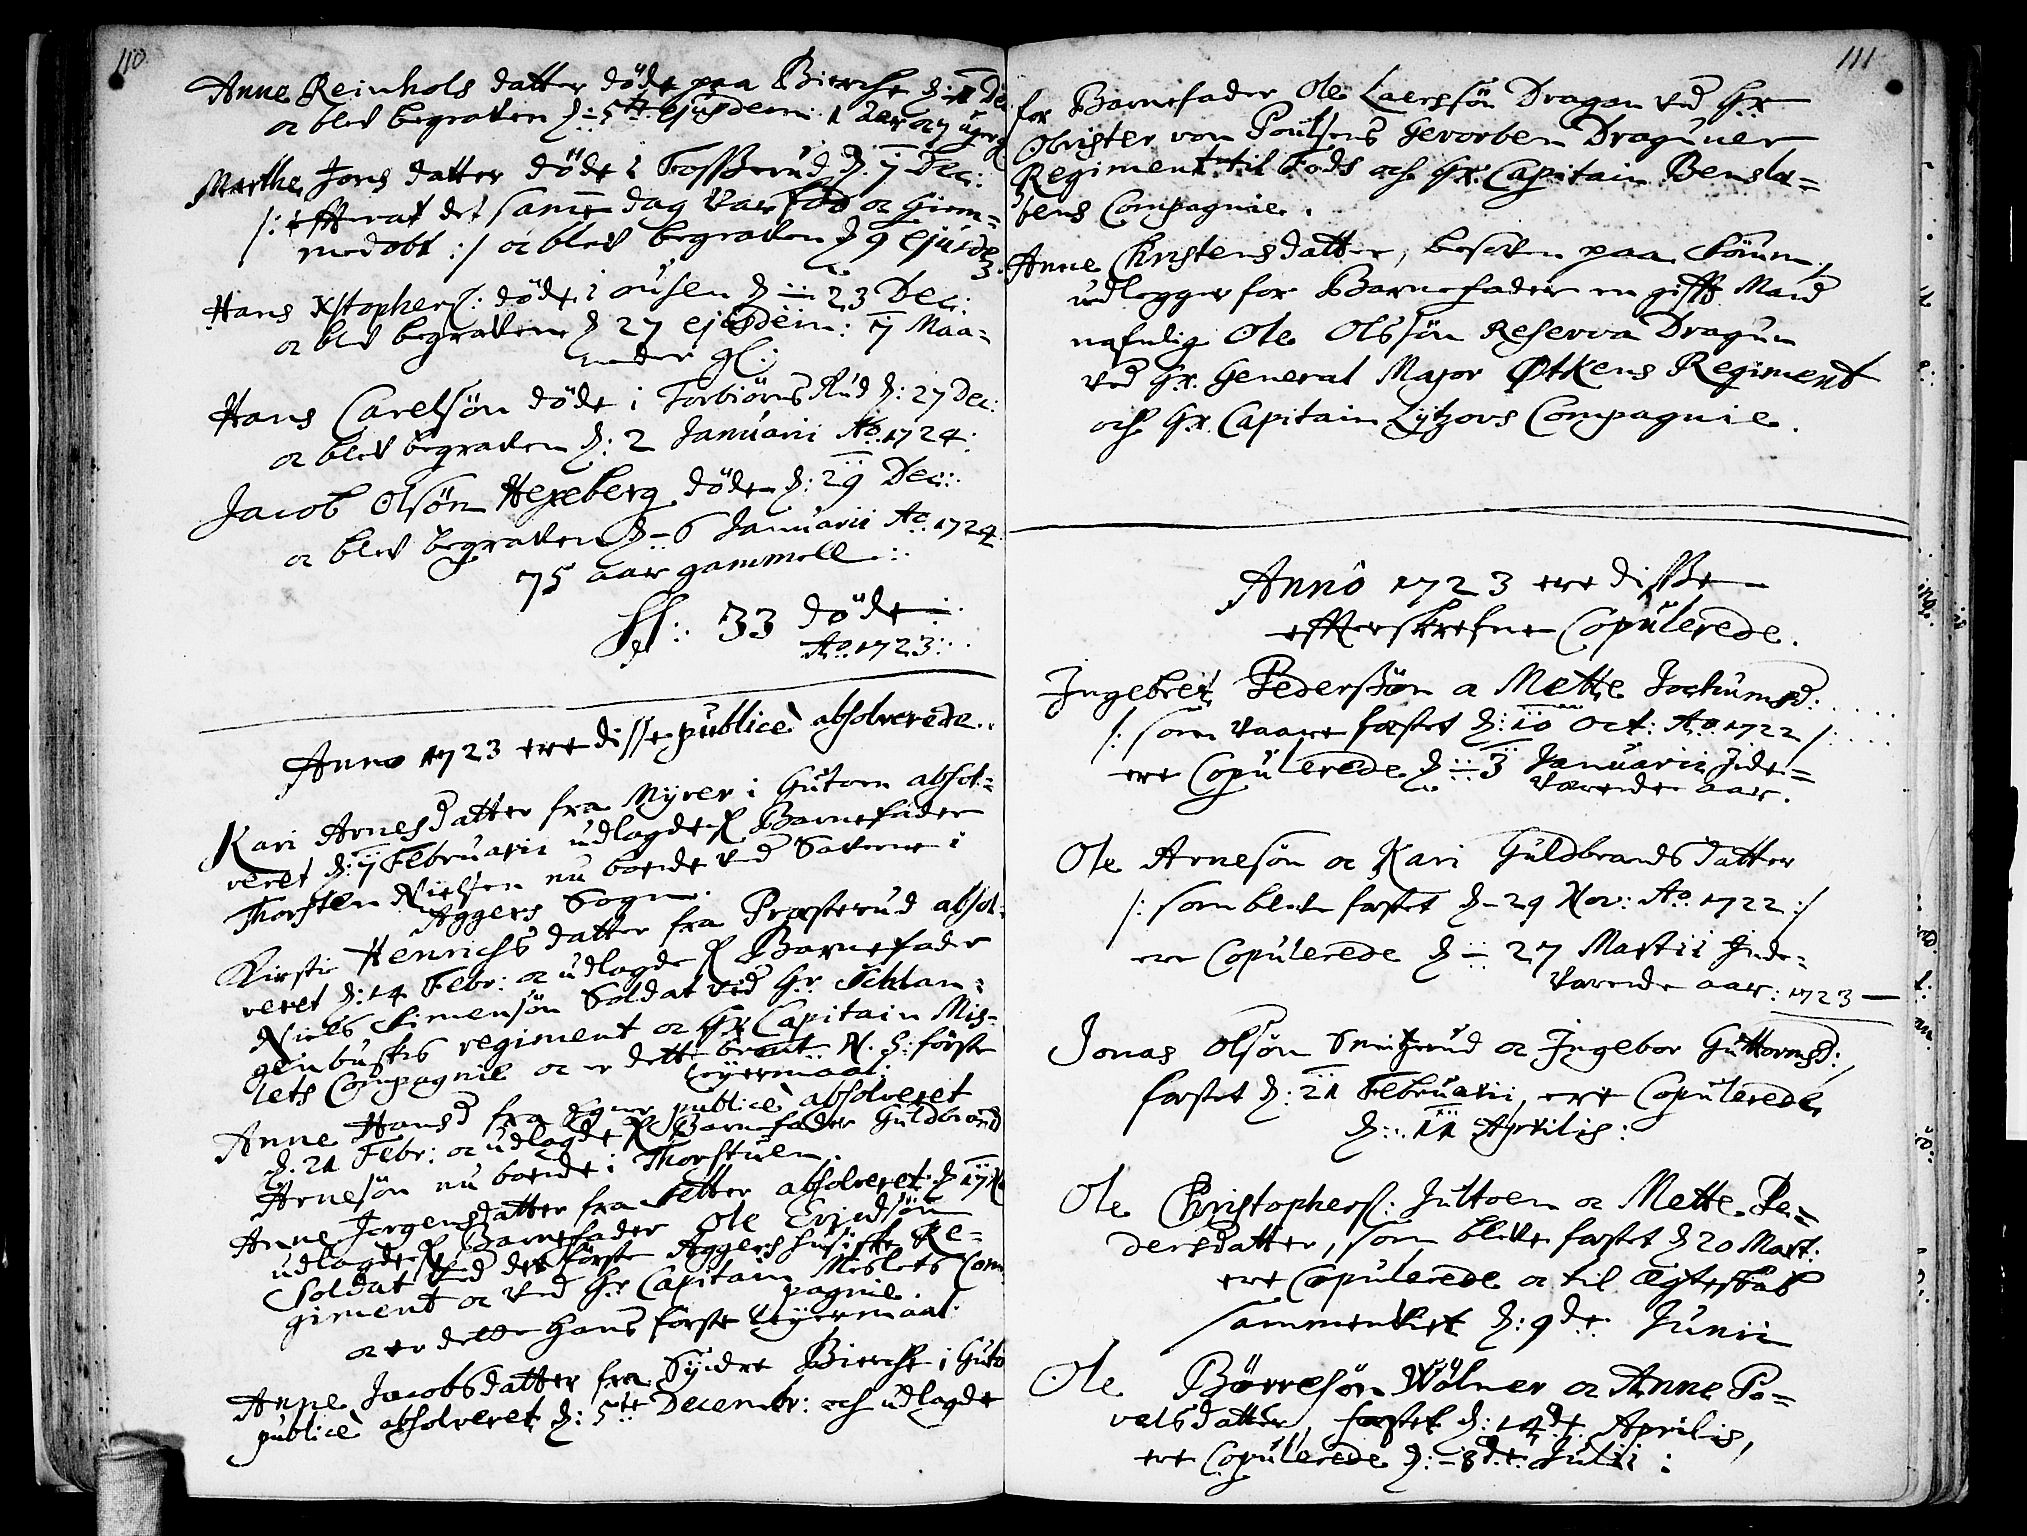 110
Anne Reinhols datter døde paa Bierche d: 1 De
oc blev begraven d: 5te ejusdem: 1 aar oc 7 uger
Marthe Jons datter døde i Fosserud d. 7 Dec:
/: efterat det samme dag var fød oc hiem=
medøbt :/ oc blev begraven d 9 ejusde
3.
Hans Xstophers: døde i ausen d 23 Dec:
oc blev begraven d 27 ejusdem: 7 Maa=
neder gl:
Hans Carelsøn døde i Torbiørns Rud d: 27 Dec:
oc blev begraven d: 2 Januarii Ao. 1724:
Jacob Olsøn Hexeberg døde d: 29 Dec:
oc blev begraven d - 6 Januarii Ao. 1724
75 aar gammell
33 døde
Ao. 1723
Anno 1723 ere disse publicè absolverede
Kari Arnesdatter fra Myrer i Gutorn absol=
veret d: 7 Februarii udlagde Barnefader
Thorsten Nielsen nu boende ved Saverne i
Aggers Sogn.
Kirstie Henrichs datter fra Præsterud absol=
veret d: 14 Febr: oc udlagde Barnefader
Niels Simensøn Soldat ved Hr. Schlan=
genbuskes regiment oc Hr. Capitain Mis=
lets Compagnie oc er dette bemt. N. S: første
Leyermaal:
Anne Hansd fra publicè absolveret
d. 21 Febr: oc udlagde Barnefader Guldbrand
Arnesøn nu boende i Thorstuen.
Anne Jorgensdatter fra Setter absolveret d 17
udlagde Barnefader Ole
Soldat ved det første Aggershusiske Re=
giment oc ved Hr Capitain Mislets Com
pagnie.
oc er dette hans første Leyermaal:
Anne Jacobsdatter fra Syndre Bierche i Guto
publicè absolveret d: 5te Decembr: och udlagde
111
for Barnefader Ole Laerssøn Dragon ved Hr
Obrister von Poulsens Gevorben Draguner
Regiment til Fods och Hr. Capitain
Compagnie.
Anne Christensdatter, besoven paa Lømm,
udlegger for Barnefader en gifft Mand
nafnlig Ole Olssøn Reserva Dragun
ved Hr. General Major Øtkens Regiment
och Hr. Capitain Lytzovs Compagnie.
Anno 1723 ere disse
effterskrefne Copulerede.
Ingebret Pederssøn oc Mette Jochumsd:
/: som vaare fæstet d: 10 Oct: Ao. 1722 /:
ere Copulerede d 3 Januarii Inde=
værende aar.
Ole Arnesøn oc Kari Guldbrands datter
/: som blev fæstet d 29 Nov: Ao. 1722 :/
ere Copulerede d 27 Martii Inde=
værende aar: 1723
Jonas Olsøn Smitzrud oc Ingebor Guttormsd:
fæstet d: 21 Februarii, ere Copulerede
d. 11 Aprilis:
Ole Christophers: Juttoen oc Mette Pe=
dersdatter, som bleve fæstet d 20 Mart:
ere Copulerede oc til Ægteskab
sammenviet d: 9de Junii
Ole Børresøn Wølner oc Anne Po=
velsdatter, fæstet d: 14de Aprilis,
ere Copulerede d: 8de Julii: